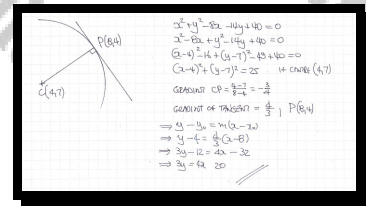 P(8,4)
C(4,7)
x² + y² - 8x - 14y + 40 = 0
x² - 8x + y² - 14y + 40 = 0
(x-4)² - 16 + (y-7)² - 49 + 40 = 0
(x-4)² + (y-7)² = 25 IE CENTRE (4,7)
GRADIENT CP = \frac{4-7}{8-4} = -\frac{3}{4}
GRADIENT OF TANGENT = \frac{4}{3} , P(8,4)
⇒ y - y₀ = m(x - x₀)
⇒ y - 4 = \frac{4}{3}(x-8)
⇒ 3y - 12 = 4x - 32
⇒ 3y = 4x 20